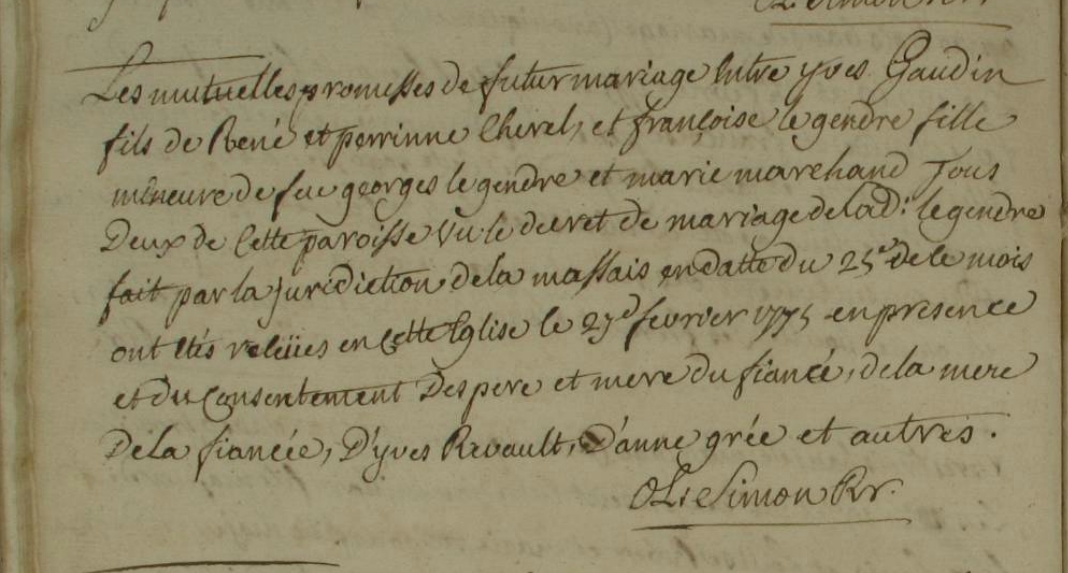 Les mutuelles promesses de futur mariage Entre yves Gaudin
fils de René et perrinne Chevel, et françoise legendre fille
mineure de feu georges legendre et marie marchand Tous
Deux de Cette paroisse Vu le decret de mariage de lad: legendre
fait par la juridiction de la massais en datte du 25e de ce mois
ont etés recüies en Cette Eglise le 27e fevrier 1775 en presence
et du Consentement Des pere et mere du fiancé, de la mere
De la fiancée, D'yves Revault, D'anne grée et autres.
Simon Rr.